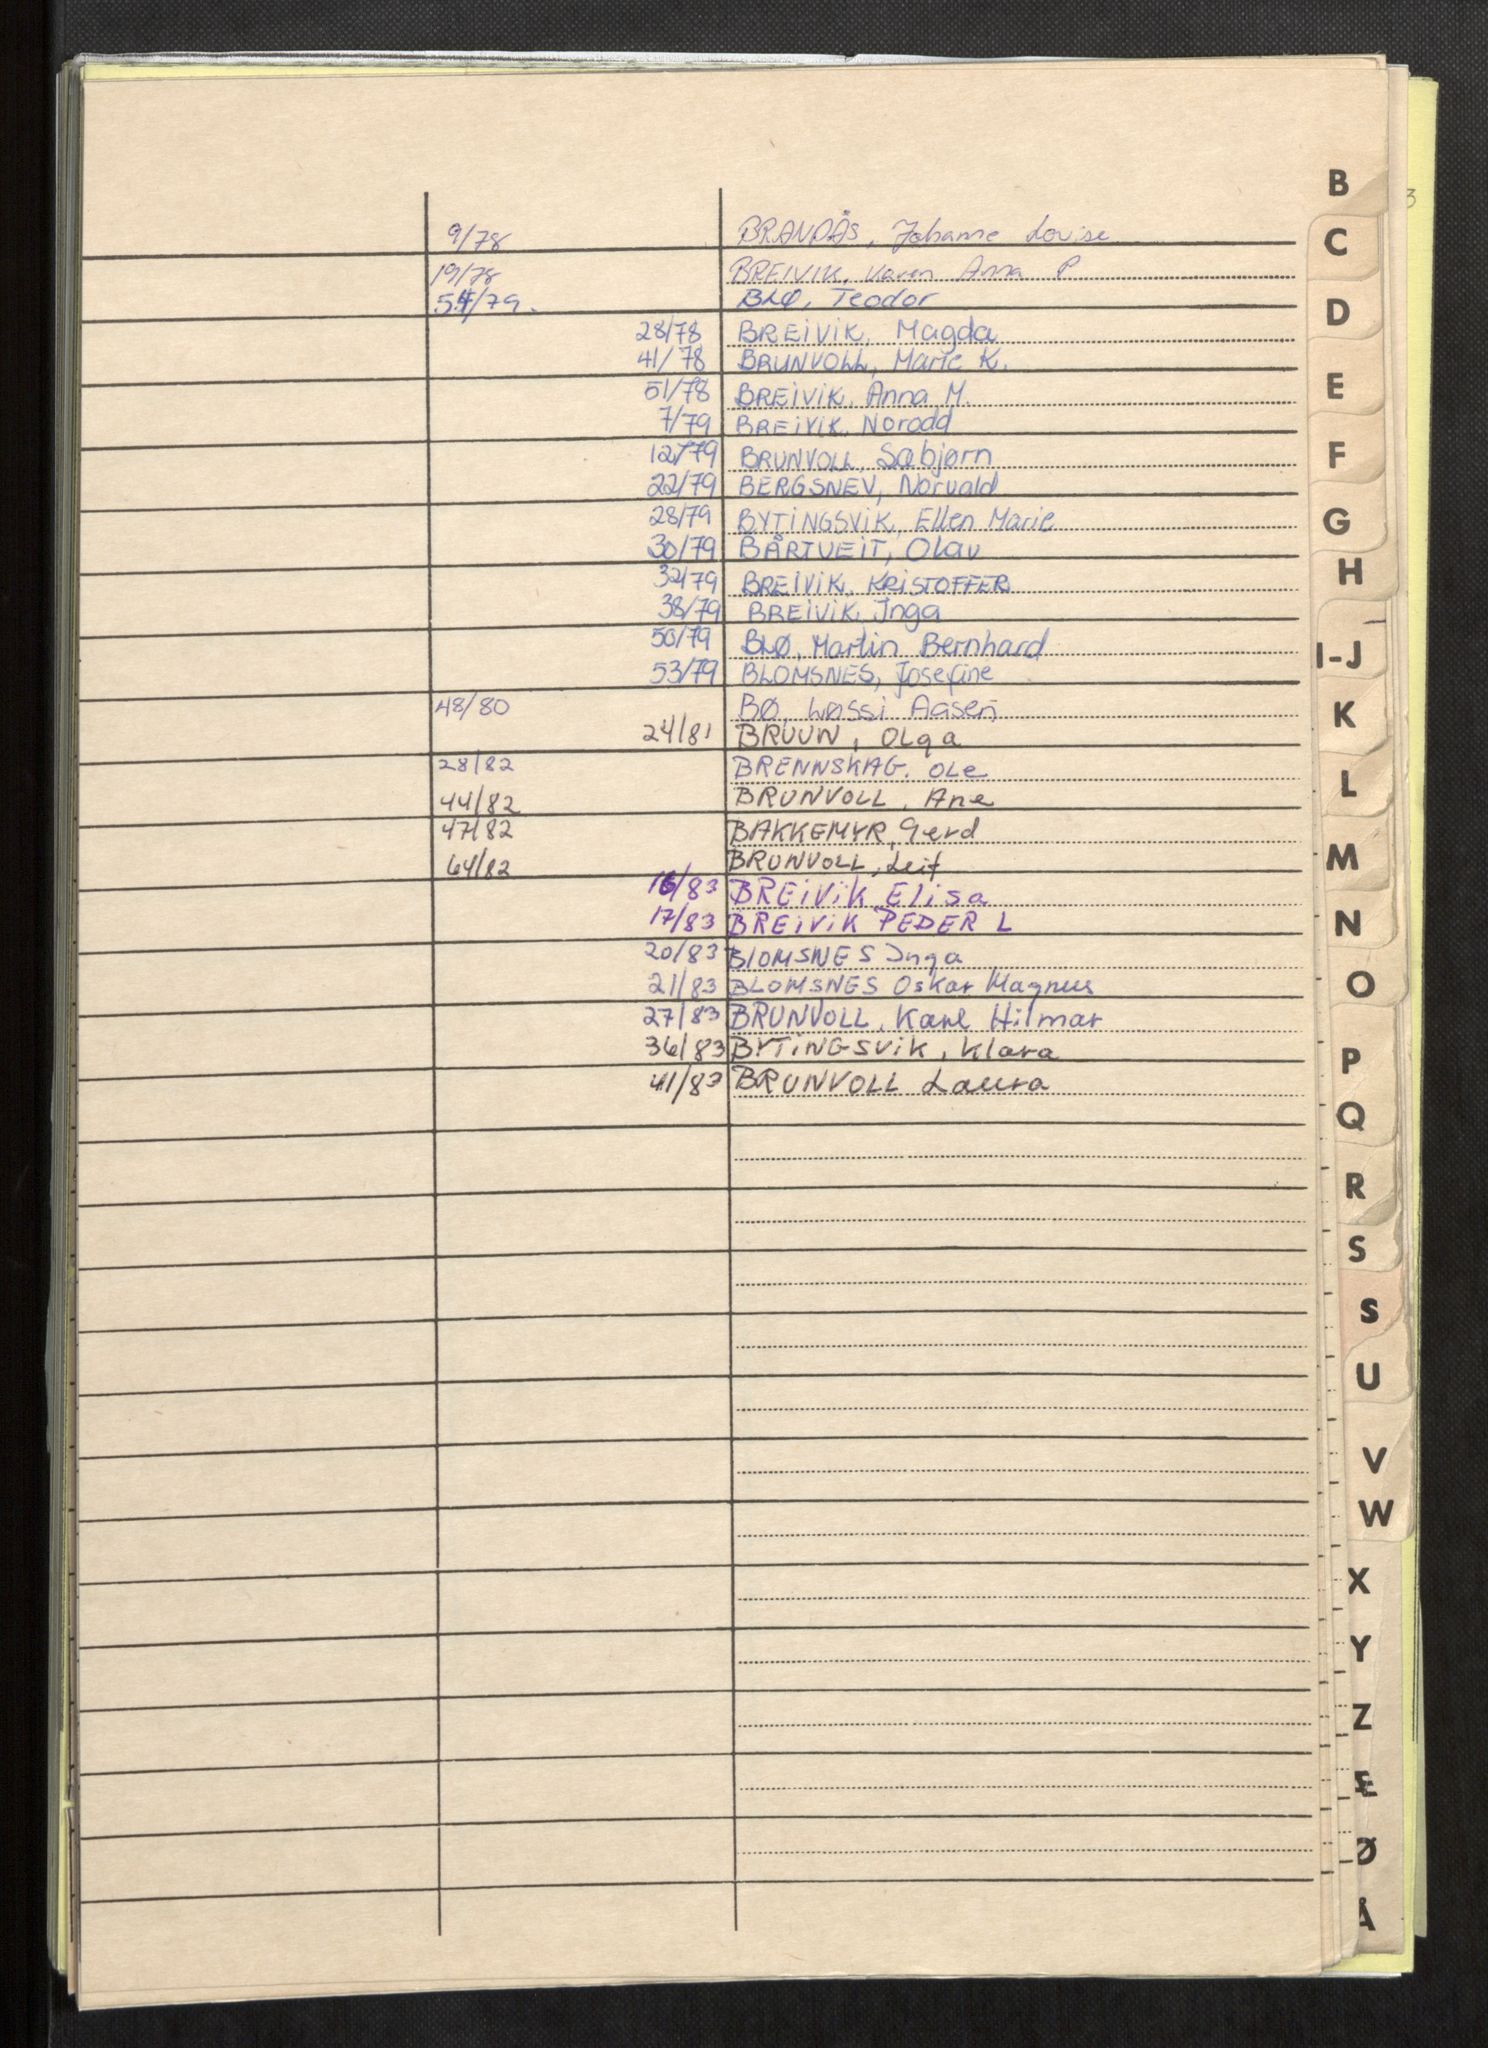 9/78 BRANDÅS, Johanne Lovise
19/78 BREIVIK, Karen Anna P
54/79. BLØ, Teodor
28/78 BREIVIK, Magda
41/78 BRUNVOLL, Marie K.
51/78 BREIVIK, Anna M.
7/79 BREIVIK, Norodd
12/79 BRUNVOLL, Sabjørn
22/79 BERGSNEV, Norvald
28/79 BYTINGSVIK, Ellen Marie
30/79 BÅRTVEIT, Olav
32/79 BREIVIK, KRISTOFFER
38/79 BREIVIK, Inga
50/79 BLØ, Martin Bernhard
53/79 BLOMSNES, Josefine
48/80 BØ, Løssi Aasen
24/81 BRUUN, OLga
28/82 BRENNSKAG, OLe
44/82 BRUNVOLL, Ane
47/82 BAKKEMYR, Gerd
64/82 BRUNVOLL, Leif
16/83 BREIVIK Elisa
17/83 BREIVIK PEDER L
20/83 BLOMSNES Inga
21/83 BLOMSNES Oskar Magnus
27/83 BRUNVOLL, Karl Hilmar
36/83 BYTINGSVIK, Klara
41/83 BRUNVOLL Laura
B
C
D
E
F
G
H
I-J
K
L
M
N
O
P
Q
R
S
S
U
V
W
X
Y
Z
Æ
Ø
Å
3